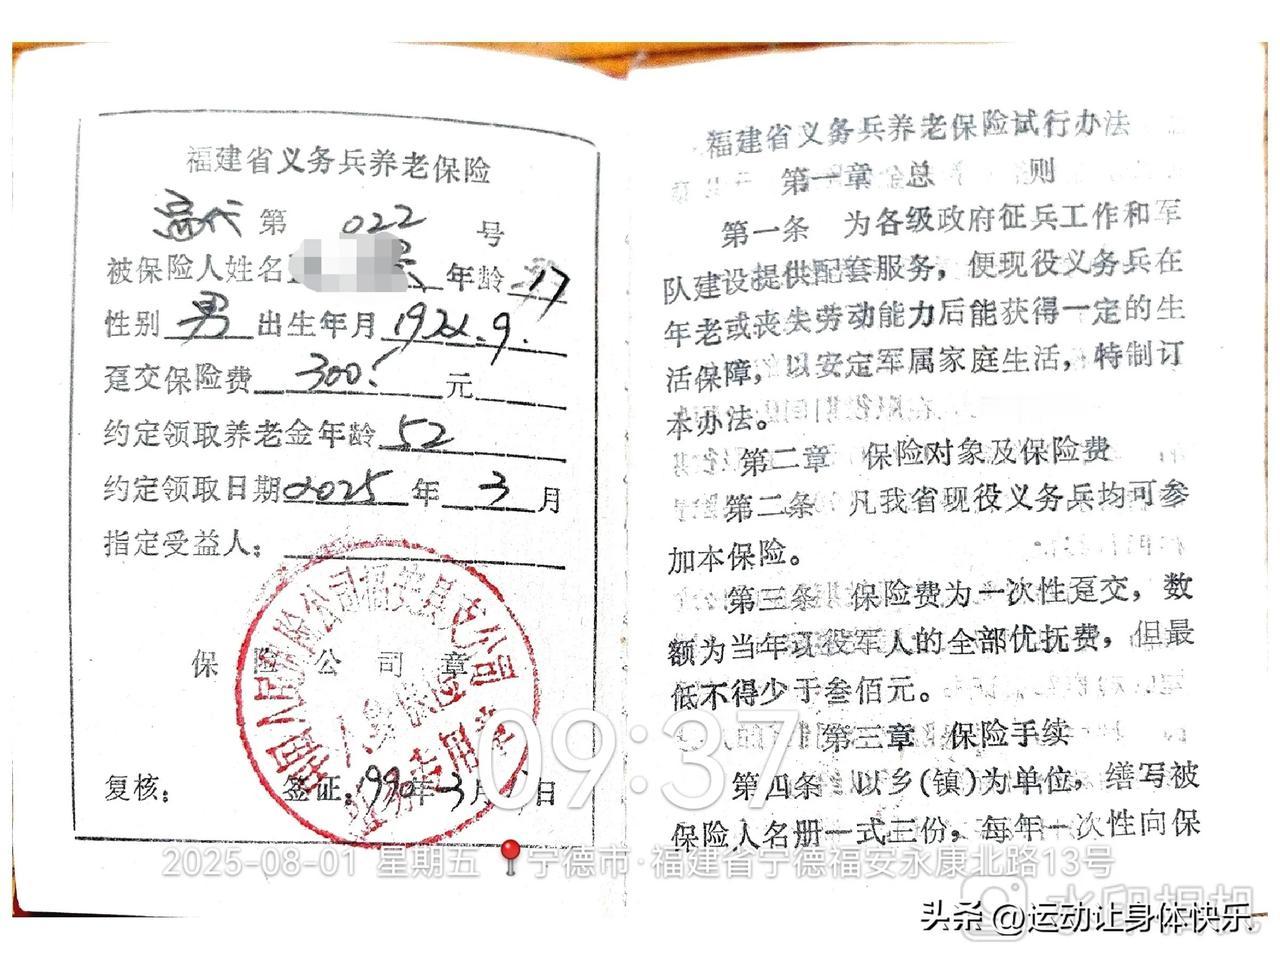 福建省义务兵养老保险
第 022 号
被保险人姓名 年龄 17
性别 男 出生年月 9.
趸交保险费 300. 元
约定领取养老金年龄 52
约定领取日期 2025 年 3 月
指定受益人:
中国人民保险公司福安县支公司
保险公司章
复核: 签证: 1990年3月 日
福建省义务兵养老保险试行办法
第一章 总 则
第一条 为各级政府征兵工作和军
队建设提供配套服务,便现役义务兵在
年老或丧失劳动能力后能获得一定的生
活保障,以安定军属家庭生活,特制订
本办法。
第二章 保险对象及保险费
第二条 凡我省现役义务兵均可参
加本保险。
第三条 保险费为一次性趸交,数
额为当年现役军人的全部优抚费,但最
低不得少于叁佰元。
第三章 保险手续
第四条 以乡(镇)为单位,缮写被
保险人名册一式三份,每年一次性向保
09:37
2025-08-01 星期五 宁德市·福建省宁德福安永康北路13号
水印相机
头条 @运动让身体快乐